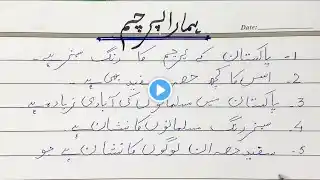 ہمارا پرچم
Date:
1- پاکستان کے پرچم کا رنگ سبز ہے۔
2. اس کا کچھ حصہ سفید بھی ہے
3. پاکستان میں مسلمانوں کی آبادی زیادہ ہے
4. سبز رنگ مسلمانوں کا نشان ہے
5. سفید حصہ ان لوگوں کا نشان ہے جو